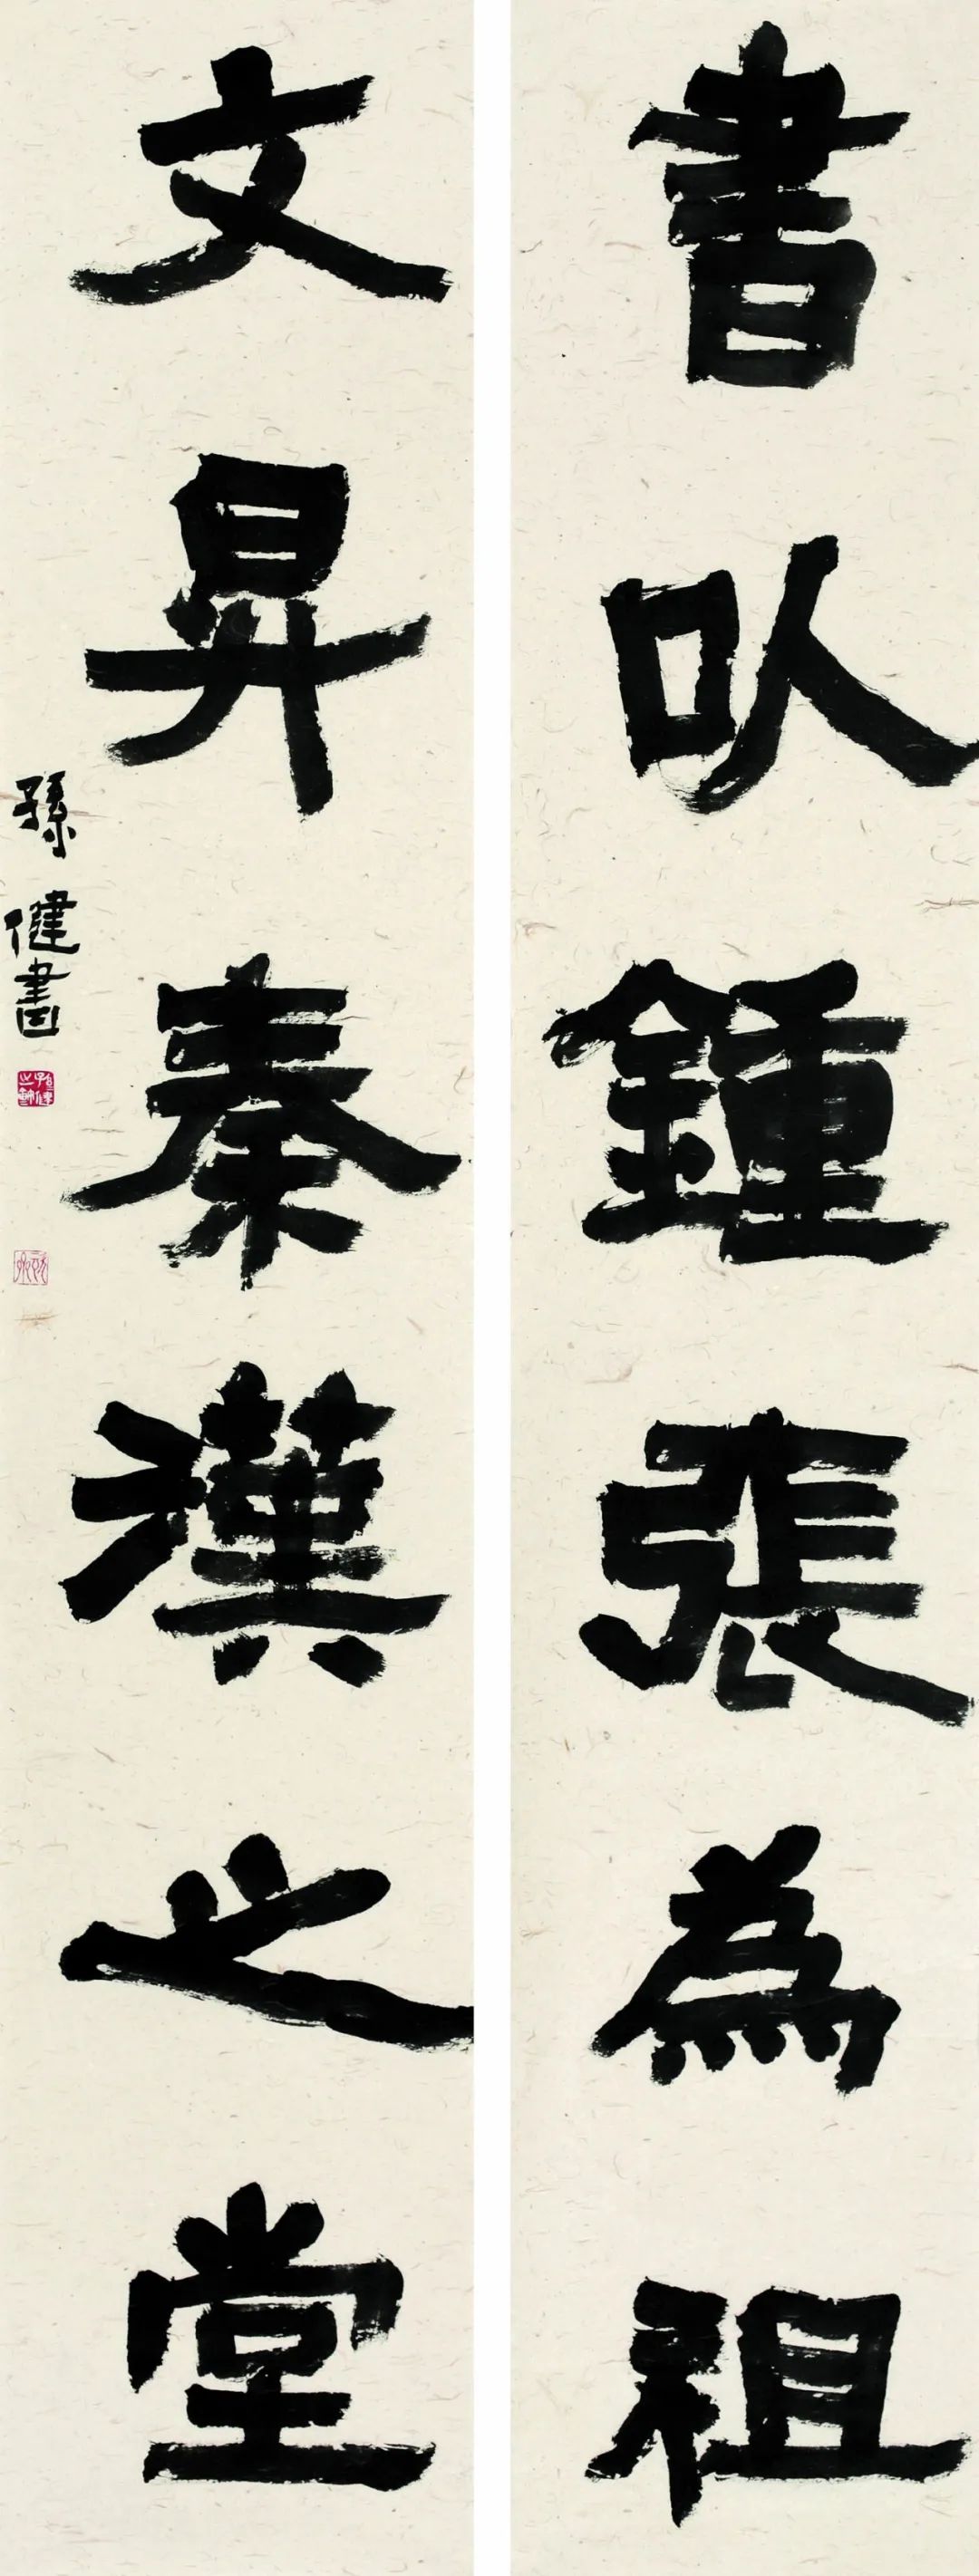 書以鍾張為祖
文昇秦漢之堂
孫健書